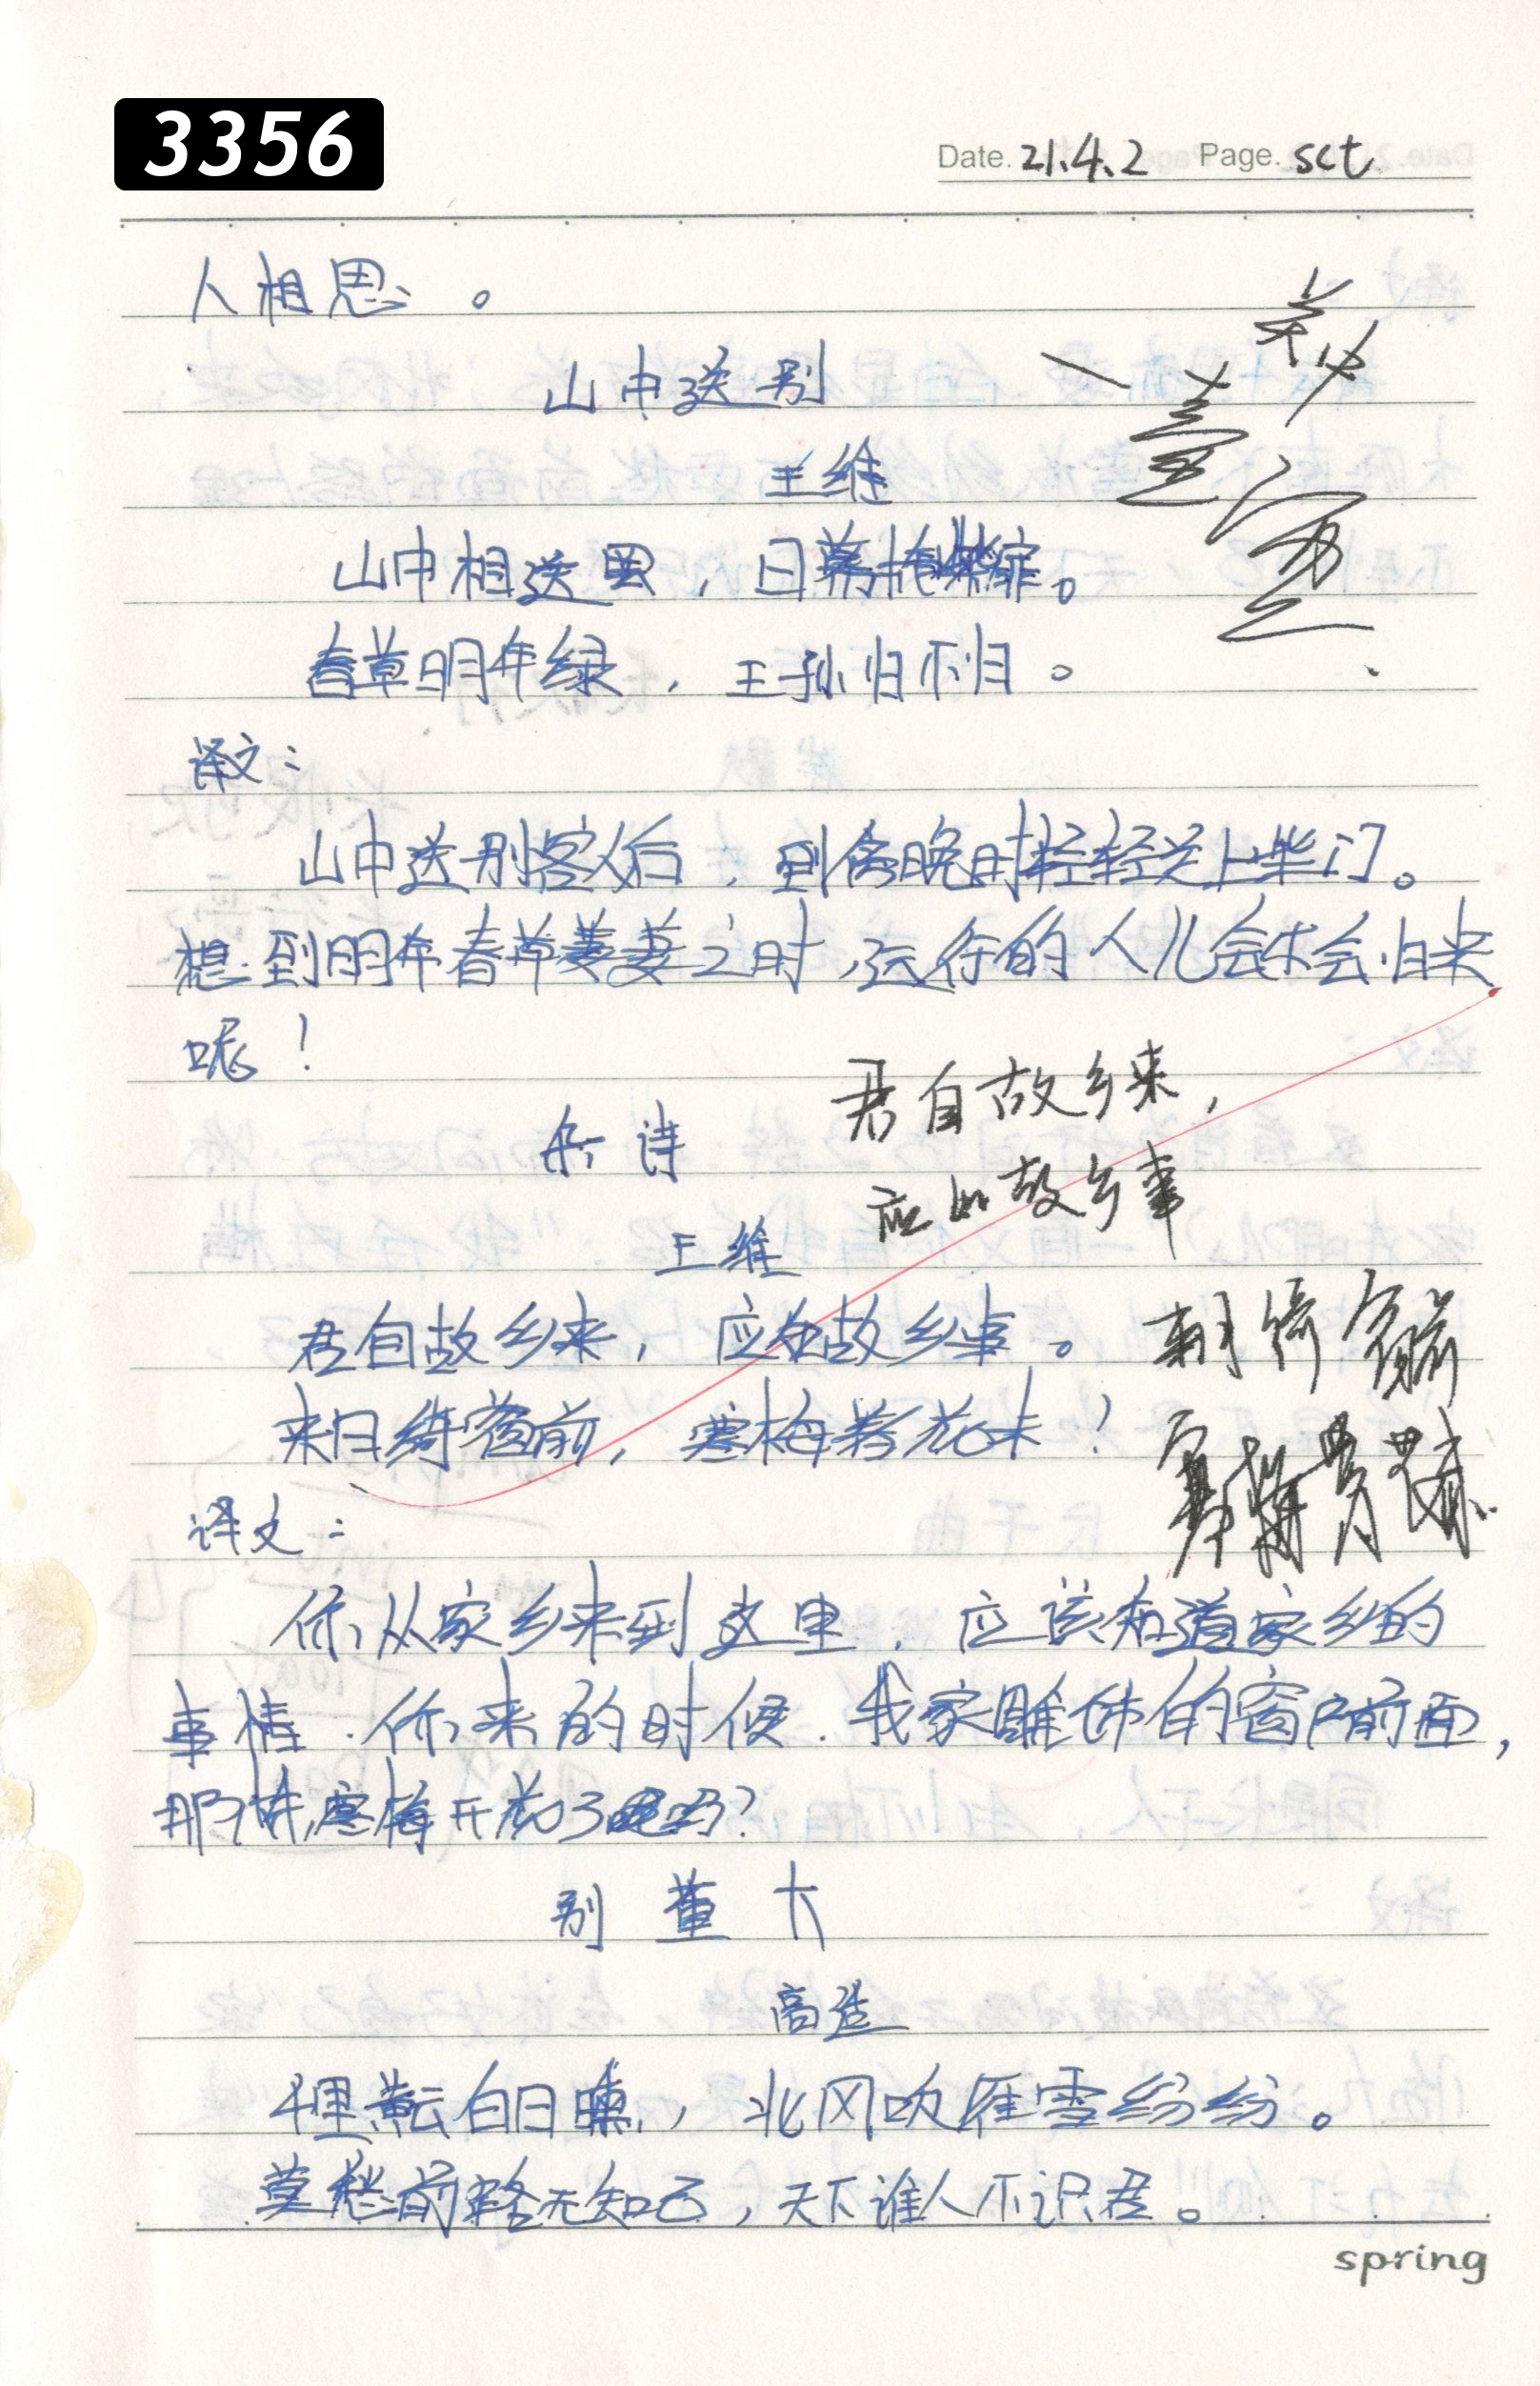 3356
Date. 21.4.2 Page. sct
人相思。
山中送别
王维
山中相送罢，日暮掩柴扉。
春草明年绿，王孙归不归。
译文：
山中送别客人后，到傍晚时轻轻关上柴门。
想到明年春草萋萋之时，远行的人儿会不会归来
呢！
君自故乡来，
杂诗
应如故乡事
王维
君自故乡来，应知故乡事。
来日绮窗前，寒梅著花未！
译文：
你从家乡来到这里，应该知道家乡的
事情.你来的时候.我家雕饰的窗户前面，
那株寒梅开花了吗？
别董大
高适
千里黄云白日曛，北风吹雁雪纷纷。
莫愁前路无知己，天下谁人不识君。
spring